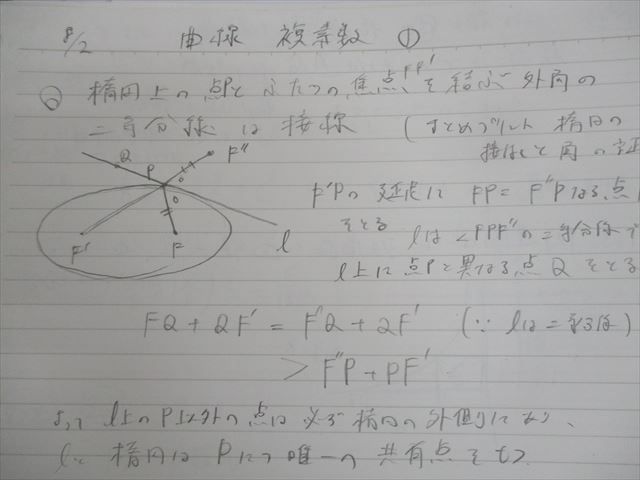 8/2 曲線 複素数 ①
◎ 楕円上の点Pとふたつの焦点F,F'を結ぶ外角の
二等分線は接線 (まとめプリント 楕円の
接線と角の
Q P F''
F' F l
F'Pの延長に FP=F''Pなる点
をとる lは∠FPF''の二等分線で
l上に点Pと異なる点Qをとる
FQ+QF'=F''Q+QF' (∵ lは二等分線)
>F''P+PF'
よって l上のP以外の点は必ず楕円の外側にあり、
lと楕円はPにて唯一の共有点をもつ